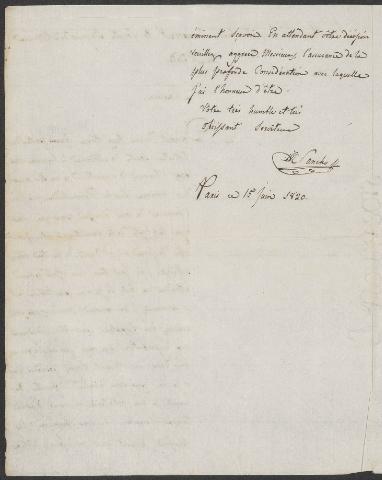 éminent Scavoir. En attendant vôtre decision
veuillez aggreer Messieurs, l'assurance de la
plus profonde Consideration avec laquelle
j'ai l'honneur d'être
Votre très humble et très
obeissant Serviteur
Paris ce 15 Juin 1820.